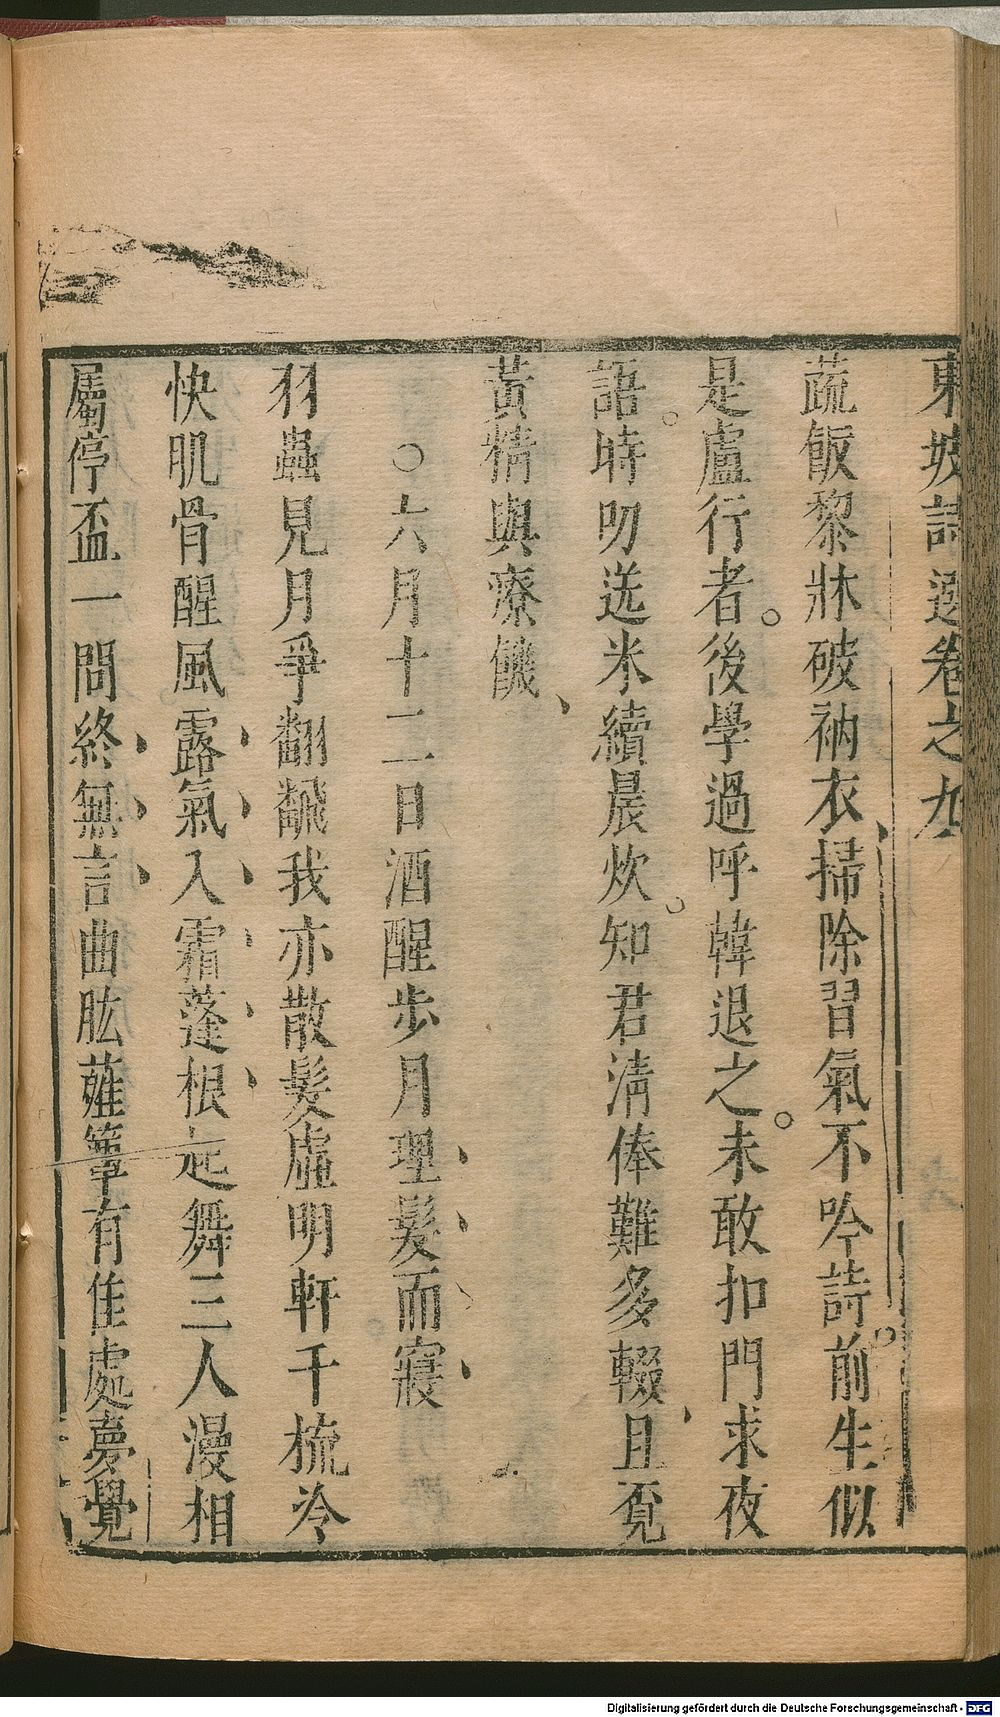 東坡詩選卷之九
蔬飯藜牀破衲衣掃除習氣不吟詩前生似
是盧行者後學過呼韓退之未敢扣門求夜
語時叨送米續晨炊知君清俸難多輟且覓
黃精與療饑
○六月十二日酒醒步月理髮而寢
羽蟲見月爭翻翻我亦散髮虛明軒千梳冷
快肌骨醒風露氣入霜蓬根起舞三人漫相
屬停盃一問終無言曲肱薤簟有佳處夢覺
Digitalisierung gefördert durch die Deutsche Forschungsgemeinschaft - DFG